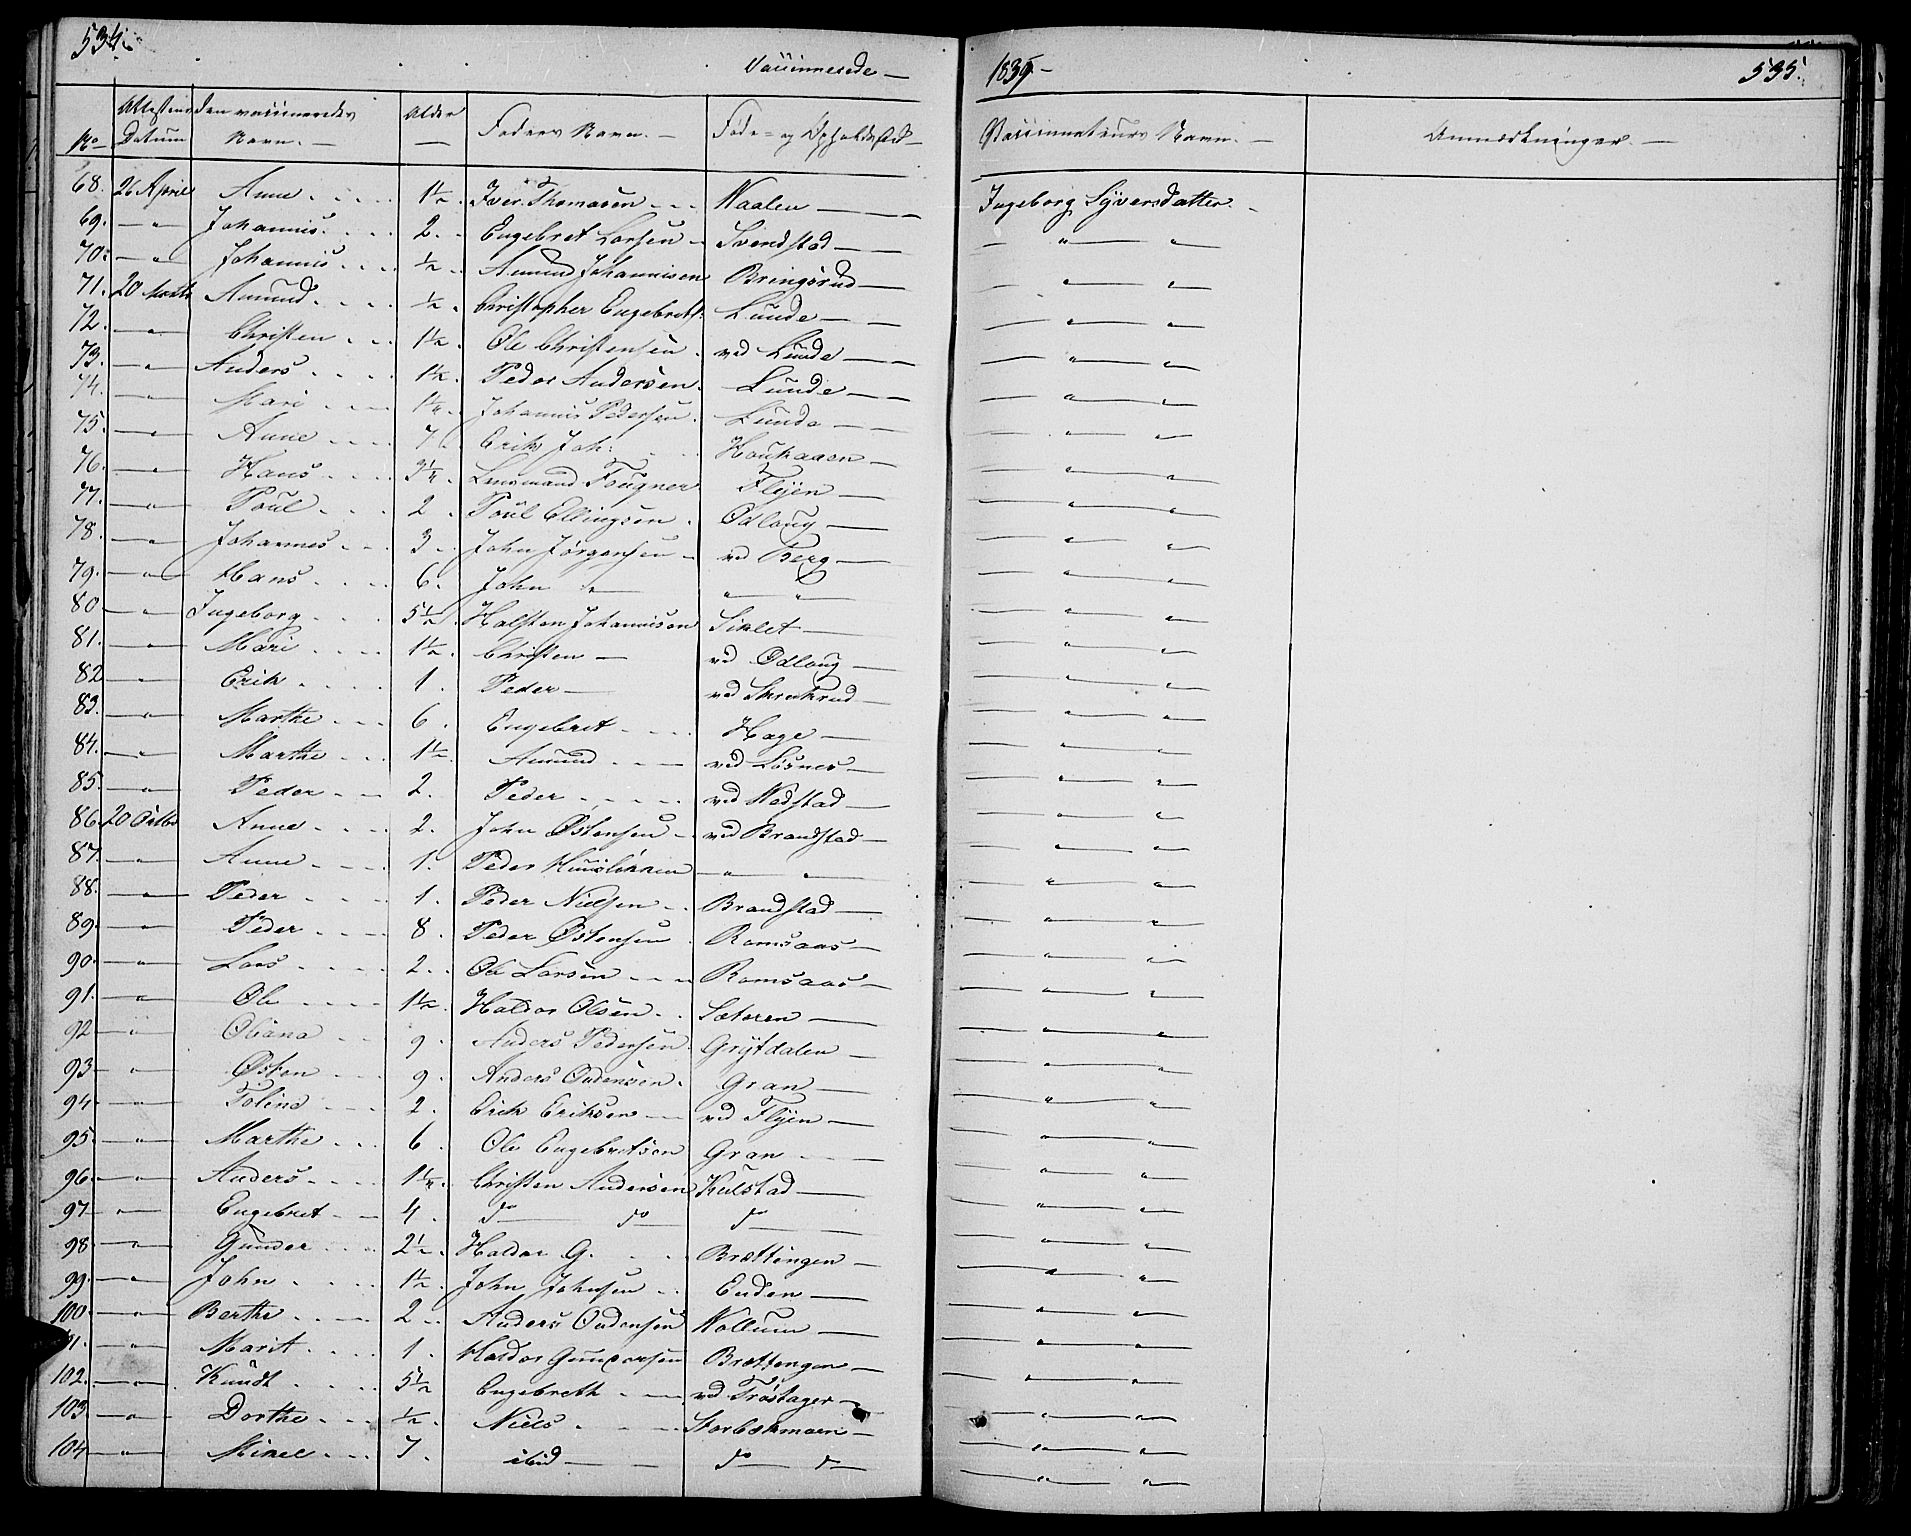 534. Vaccinerede — 1839 — 535.
No Attestens Datum Den vaccineredes Navn. — Alder — Faders Navn. — Føde- og Opholds Sted — Vaccinateurs Navn. — Anmærkninger. —
68. 26 April Anne 1½ Iver Thomasen Naalen — Ingeborg Syversdatter.
69. — " — Johannis 2. Engebret Larsen Svendstad — — " — "
70. — " — Johannis ½ Amund Johannisen Bringsrud — — " — "
71. 20 Amund ½ Christopher Engebrets. Lunde — — " — "
72. — " — Christen 1½ Ole Christensen ved Lunde — — " — "
73. — " — Anders 1½ Peder Andersen Lunde — — " — "
74. — " — Mari 1¼ Johannis Pedersen Lunde — — " — "
75. — " — Anne 7. Erik Joh. Houkaasen — — " — "
76. — " — Hans 3¼ Lensmand Fougner Flyen — — " — "
77. — " — Poul 2 Poul Ellingsen Odloug — — " — "
78. — " — Johannes 3 John Jørgensen ved Berg — — " — "
79. — " — Hans 6. John " — " " — " — "
80 — " — Ingeborg 5½ Halsten Johannisen Siklet — — " — "
81. — " — Mari 1½ Christen — vd Odloug — — " — "
82 — " — Erik 1. Peder — ved Skrukrud — — " — "
83. — " — Marthe 6 Engebret Hage — — " — "
84. — " — Marthe 1½ Amund ved Losnes — — " — "
85. — " — Peder 2. Peder ved Nedstad — — " — "
86. 20 Octbr Anne 2. John Østensen ved Brandstad — — " — "
87. — " — Anne 1. Peder — " — " — — " — "
88. — " — Peder 1. Peder Nielsen Brandstad — — " — "
89. — " — Peder 8 Peder Østensen Romsaas — — " — "
90. — " — Lars 2. Ole Larsen Romsaas — — " — "
91. — " — Ole 1½ Haldor Olsen Sæteren — — " — "
92 — " — Oliana 9 Anders Pedersen Grytdalen — — " — "
93 — " — Østen 9. Anders Oudensen Gran — — " — "
94 — " — Toline 2. Erik Eriksen ved Flyen — — " — "
95. — " — Marthe 6 Ole Engebretsen Gran — " — "
96. — " — Anders 1¼ Christen Andersen Kulstad — — " — "
97 — " — Engebret 4 do do do — — " — "
98 — " — Gunder 2½ Haldor G. Brættingen — — " — "
99. — " — John 1½ John Johnsen Enden — — " — "
100. — " — Berthe 2 Anders Oudensen Kollum — — " — "
101. — " — Marit 1. Haldor Gundersen Brættengen — — " — "
102. — " — Knudt 5½ Engebreth ved Trøstager — — " — "
103 — " — Dorthe ½ Niels Storbækmoen — — " — "
104 — " — Mikel 7. ibid — do — do — " — "